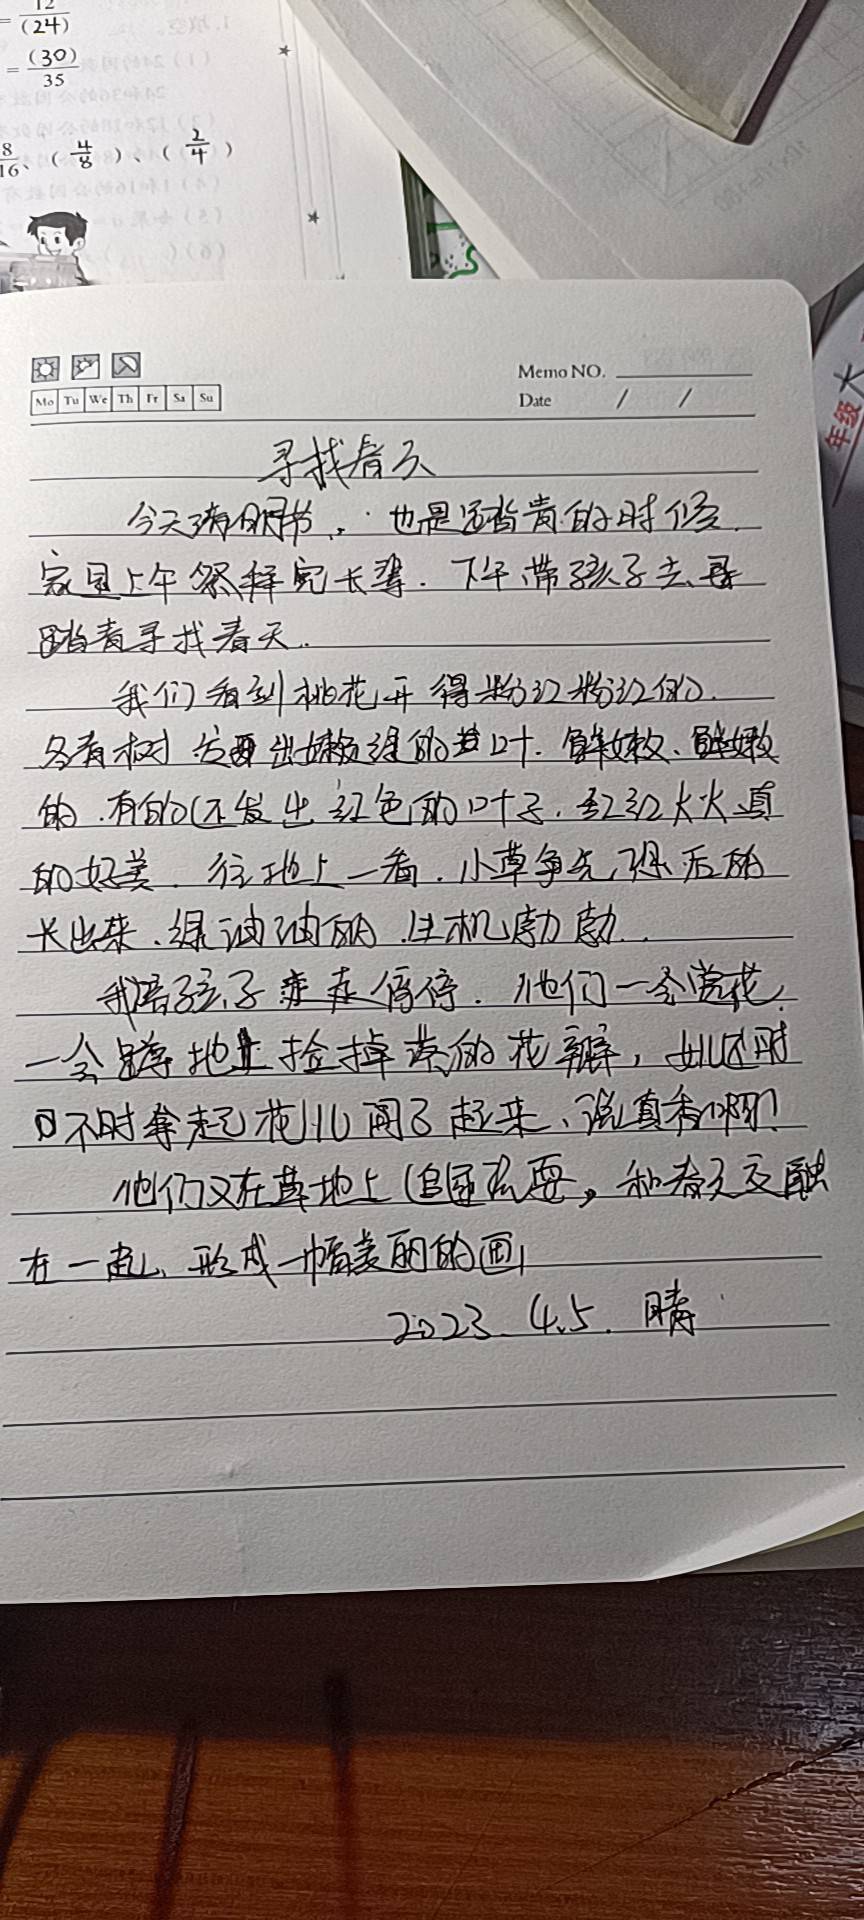 12
(24)
= (30)
35
8
16 、( 4
8 )、( 2
4 )
Memo NO.
Mo Tu We Th Fr Sa Su
Date / /
寻找春天
今天清明节,也是踏青的时候.
家里上午祭拜完长辈.下午带孩子去
踏青寻找春天.
我们看到桃花开得粉红粉红的.
各有树发出嫩绿的叶.鲜嫩、鲜嫩
的.有的还发出红色的叶子.红红火火真
的好美.往地上一看.小草争先恐后的
长出来.绿油油的.生机勃勃.
我陪孩子走走停停.他们一会赏花,
一会蹲地上捡掉落的花瓣,女儿还时
不时拿起花儿闻了起来、说真香啊!
他们又在草地上追逐玩耍,和春天交融
在一起、形成一幅美丽的画
2023.4.5.晴
年级